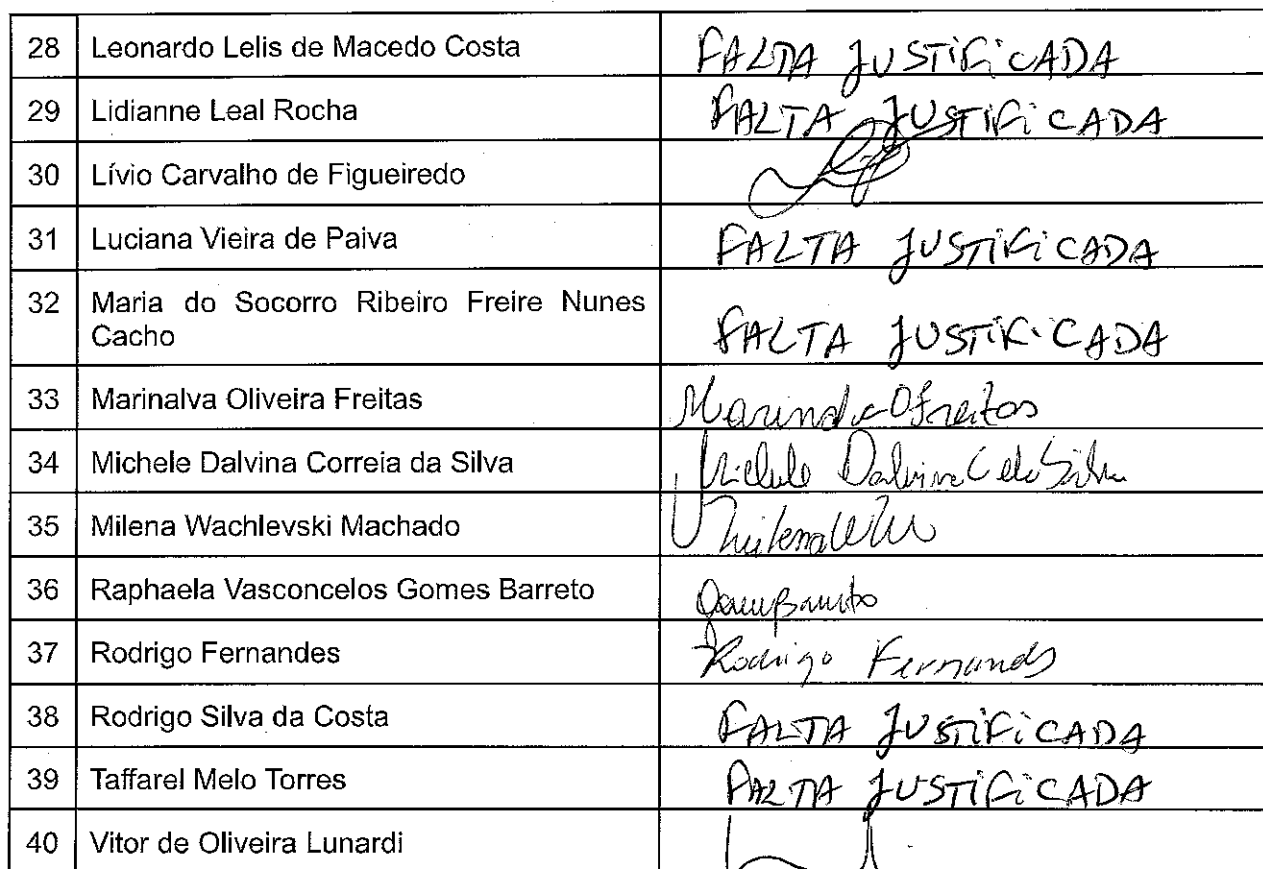 28 Leonardo Lelis de Macedo Costa FALTA JUSTIFICADA
29 Lidianne Leal Rocha FALTA JUSTIFICADA
30 Lívio Carvalho de Figueiredo
31 Luciana Vieira de Paiva FALTA JUSTIFICADA
32 Maria do Socorro Ribeiro Freire Nunes
Cacho FALTA JUSTIFICADA
33 Marinalva Oliveira Freitas Marinalva O Freitas
34 Michele Dalvina Correia da Silva Michele Dalvina C da Silva
35 Milena Wachlevski Machado Milena WM
36 Raphaela Vasconcelos Gomes Barreto
37 Rodrigo Fernandes Rodrigo Fernandes
38 Rodrigo Silva da Costa FALTA JUSTIFICADA
39 Taffarel Melo Torres FALTA JUSTIFICADA
40 Vitor de Oliveira Lunardi